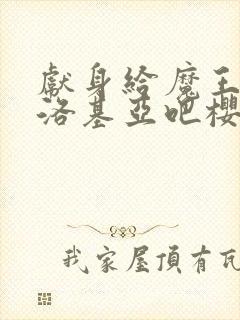 獻身給魔王
洛基亞吧櫻
我家屋頂有瓦